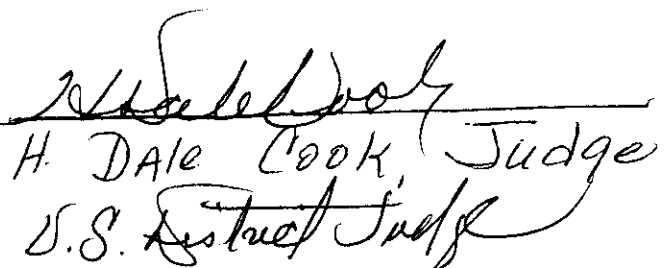 H Dale Cook
H. DAle Cook, Judge
U.S. District Judge